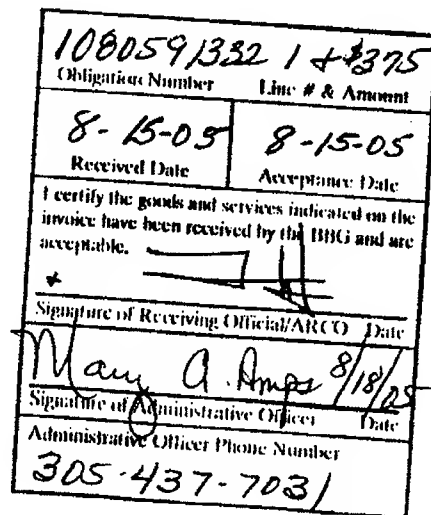 1080591332 1 + $375
Obligation Number Line # & Amount
8-15-05 8-15-05
Received Date Acceptance Date
I certify the goods and services indicated on the
invoice have been received by the BBG and are
acceptable.
Signature of Receiving Official/ARCO Date
Mary A. Amps 8/18/05
Signature of Administrative Officer Date
Administrative Officer Phone Number
305-437-7031